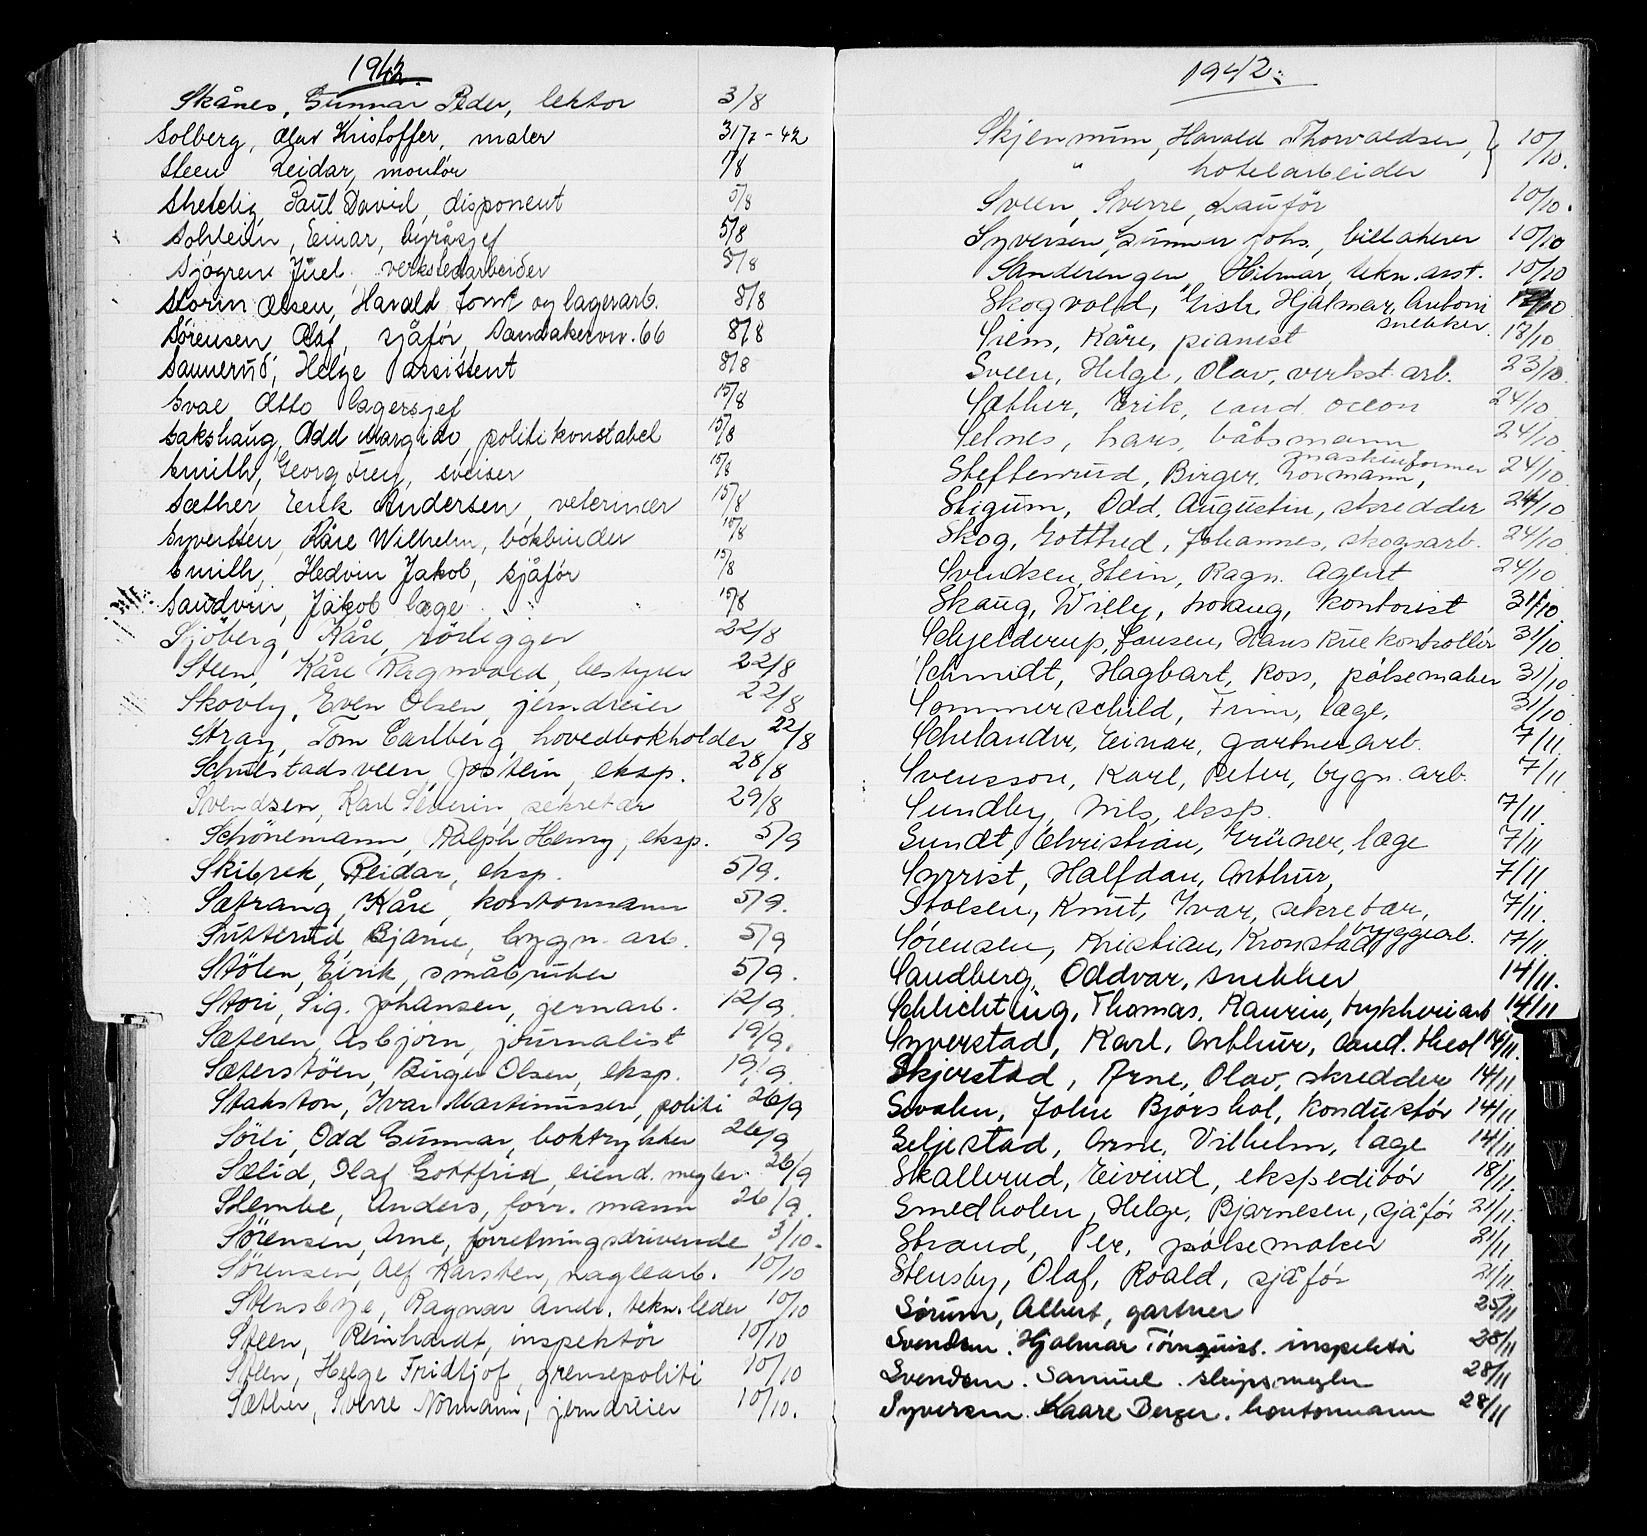 1942.
Skånes, Gunnar Peder, lektor 3/8
Solberg, Olav Kristoffer, maler 31/7-42
Steen Reidar, montör 1/8
Shetelig, Paul David, disponent 5/8
Einar, byråsjef 5/8
Sjøgren Juel verkstedarbeider 5/8
Storm Olsen, Harald og lagerarb. 8/8
Sørensen, Olaf, sjåfør, Sandakervn. 66 8/8
Sannerud, Helge assistent 8/8
Svae Otto lagersjef 15/8
Sakshaug, Odd Margido, politikonstabel 15/8
Smith, Georg Frey, sveiser 15/8
Sæther, Eerik Andersen, veterinær 15/8
Syvertsen, Kåre Wilhelm, bokbinder 10/8
Smith, Hedvin Jakob, sjåfør 15/8
Sandvin, Jakob læge 15/8
Sjöberg, Kåre, rörlegger 22/8
Steen, Kåre Ragnvald, bestyrer 22/8
Skovly, Even Olsen, jerndreier 22/8
Stray, Tom Carlberg, hovedbokholder 22/8
Schulstadsveen, Jostein, eksp. 28/8
Svendsen, Karl Severin, sekretær 29/8
Schönemann, Ralph Henry, eksp. 5/9
Skibrek, Reidar, eksp. 5/9.
Sætrang, Kåre, kontormann 5/9.
Sutterud, Bjarne, bygn. arb. 5/9
Stölen, Eirik, småbruker 5/9.
Stori, Sig. Johansen, jernarb. 12/9.
Sæteren, Asbjörn, journalist 19/9.
Sæterstöen, Birger Olsen, eksp. 19/9.
Stakston, Ivar Martinussen, politi 26/9
Sörli, Odd Gunnar, boktrykker 26/9
Sælid, Olaf Gottfrid, eiend. megler 26/9
Slembe, Anders, forr. mann 26/9.
Sörensen, Arne, forretningsdrivende 3/10.
Sörensen, Alf Karsten, naglearb. 10/10
Stensbye, Ragnar Andr. tekn. leder 10/10
Steen, Reinhardt, inspektör 10/10
Steen, Helge Fridtjof, grensepoliti 10/10
Sæther, Sverre Normann, jerndreier 10/10.
1942.
Skjennum, Harald Thorvaldsen, } 10/10.
" hotelarbeider
Sveen, Sverre, chauför 10/10.
Syversen, Gunnar Johs., billakerer 10/10
Sanderengen, Hilmar, tekn. asst. 10/10
Skogvold, Hjalmar, Antoni 17/10
snekker.
Siem, Kåre, pianist 18/10
Sveen, Helge, Olav, verkst. arb. 23/10
Sæther, Erik, cand. oecon 24/10
Selnes, Lars, båtsmann 24/10
maskinformer
Steffenrud, Birger, Normann, 24/10
Stigum, Odd, Augustin, skredder 24/10
Skog, Gotthed, Johannes, skogsarb. 24/10
Svendsen, Stein, Ragn. agent 24/10
Skaug, Willy, kontorist 31/10
Schjelderup, Hans Rue kontrollör 31/10
Schmidt, Hagbart, Ross, pölsemaker 31/10
Sommerschild, Finn, læge, 31/10
Schelander, Einar, gartnerarb. 7/11
Svensson, Karl, Peter, bygn. arb. 7/11
Sundby, Nils, eksp. 7/11.
Sundt, Christian, Grüner, læge 7/11
Syrrist, Halfdan, Arthur, 7/11
Stolsen, Knut, Ivar, sekretær, 7/11.
byggearb.
Sørensen, Kristian, Kronstad 7/11.
Sandberg, Oddvar, snekker 14/11.
Schlichting, Thomas, Kaurin, trykkeriarb 14/11
Syverstad, Karl, Arthur, Cand. theol 14/11.
Skjerstad, Arne, Olav, skredder 14/11
Svalin, John Bjørshol, konduktør 14/11
Seljestad, Arne, Vilhelm, læge 14/11
Skallerud, Eivind, ekspeditör 18/11
Smedholen, Helge, Bjarnesen, sjåfør 21/11
Strand, Per, pølsemaker 21/11
Stensby, Olaf, Roald, sjåfør 21/11
Sörum, Albert, gartner 25/11
Svendsen. Hjalmar Törnquist. inspektör 28/11
Svendsen. Samuel. skipsmegler 28/11
Syversen. Kaare Berger. kontormann 28/11
T
U
V
W
X
Y
Z